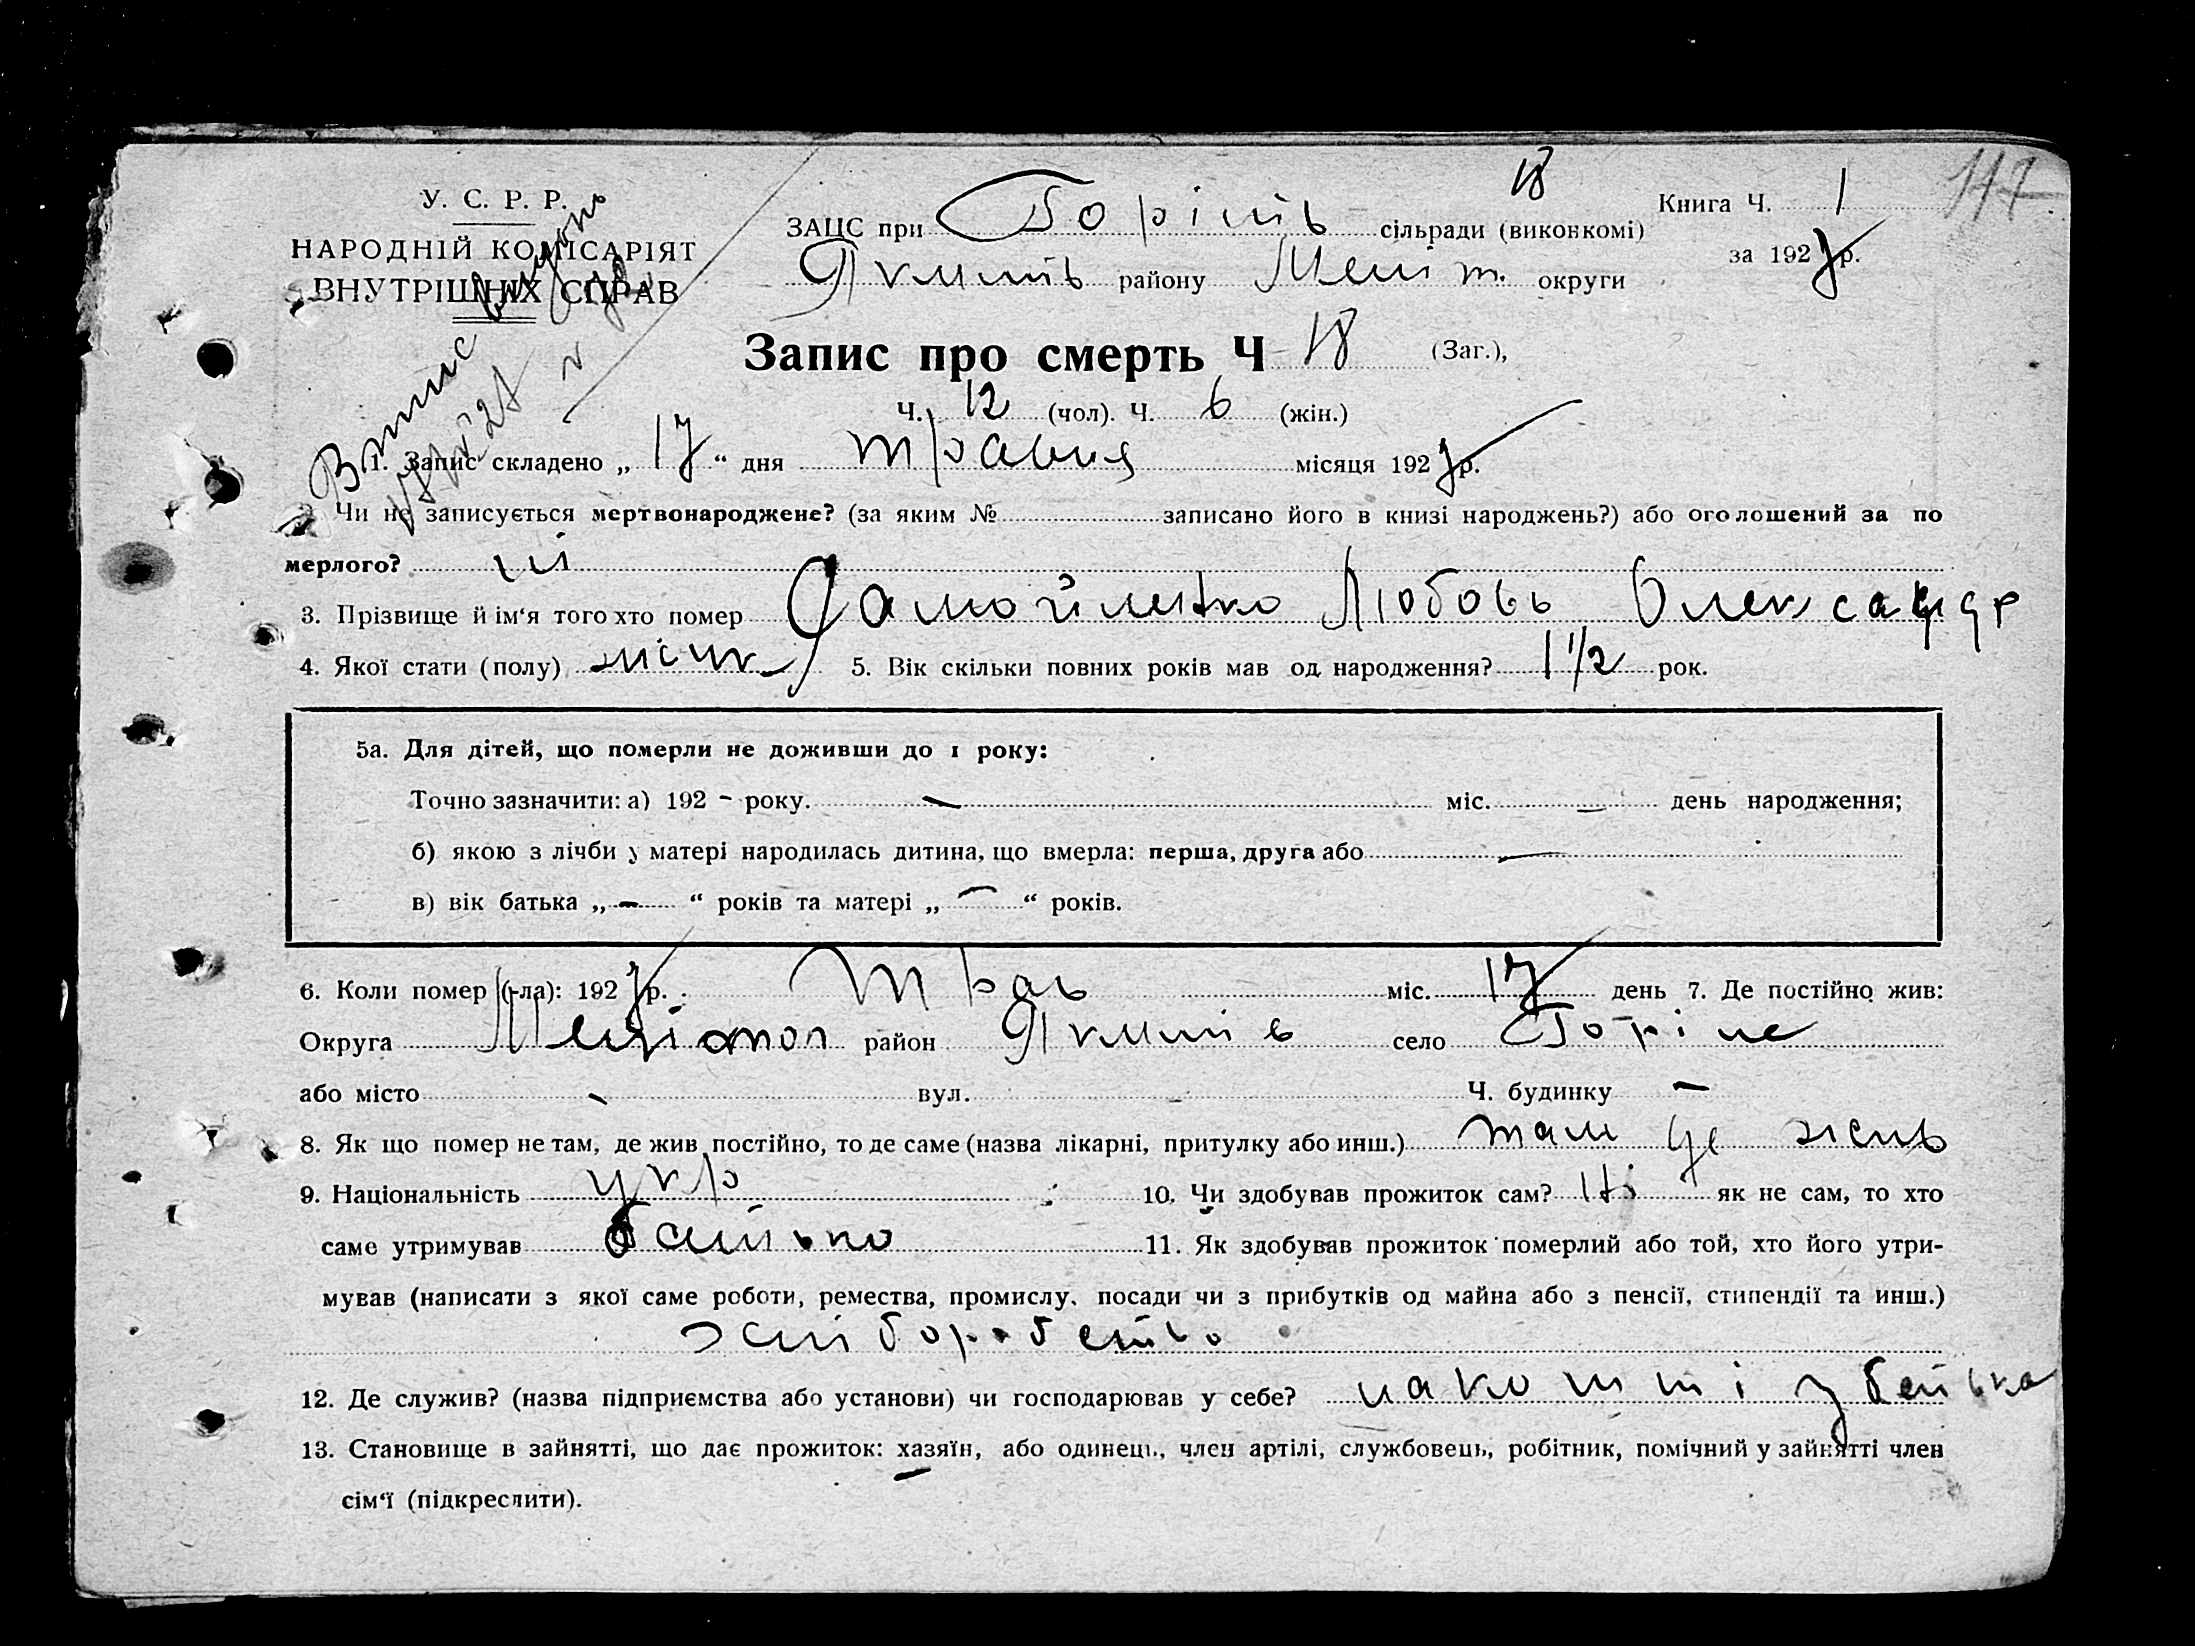 У. С. Р. Р.
НАРОДНІЙ КОМІСАРІЯТ
ВНУТРІШНІХ СПРАВ
ЗАЦС при Горіш сільради (виконкомі)
18
Якимів району Меліт. округи
Книга Ч. 1
за 1927 р.
117
Запис про смерть Ч 18 (Заг.),
Ч. 12 (чол). Ч. 6 (жін.)
Випис
1. Запис складено „ 17 “ дня травня місяця 1927 р.
2. Чи не записується мертвонароджене? (за яким № записано його в книзі народжень?) або оголошений за по
мерлого? ні
3. Прізвище й ім‘я того хто помер Самойленко Любовь Олександр
4. Якої стати (полу) жіноч 5. Вік скільки повних років мав од народження? 1 1/2 рок.
5а. Для дітей, що померли не доживши до 1 року:
Точно зазначити: а) 192 - року. — міс. — день народження;
б) якою з лічби у матері народилась дитина, що вмерла: перша, друга або —
в) вік батька „ — “ років та матері „ — “ років.
6. Коли помер (-ла): 1927 р. Трав міс. 17 день 7. Де постійно жив:
Округа Мелітопол район Якимів село Горіле
або місто - вул. - Ч. будинку —
8. Як що помер не там, де жив постійно, то де саме (назва лікарні, притулку або инш.) там де жив
9. Національність укр 10. Чи здобував прожиток сам? Ні як не сам, то хто
саме утримував батько 11. Як здобував прожиток померлий або той, хто його утри-
мував (написати з якої саме роботи, ремества, промислу, посади чи з прибутків од майна або з пенсії, стипендії та инш.)
хліборобство
12. Де служив? (назва підприємства або установи) чи господарював у себе? на кошті у батька
13. Становище в зайнятті, що дає прожиток: хазяїн, або одинець, член артілі, службовець, робітник, помічний у зайнятті член
сім‘ї (підкреслити).